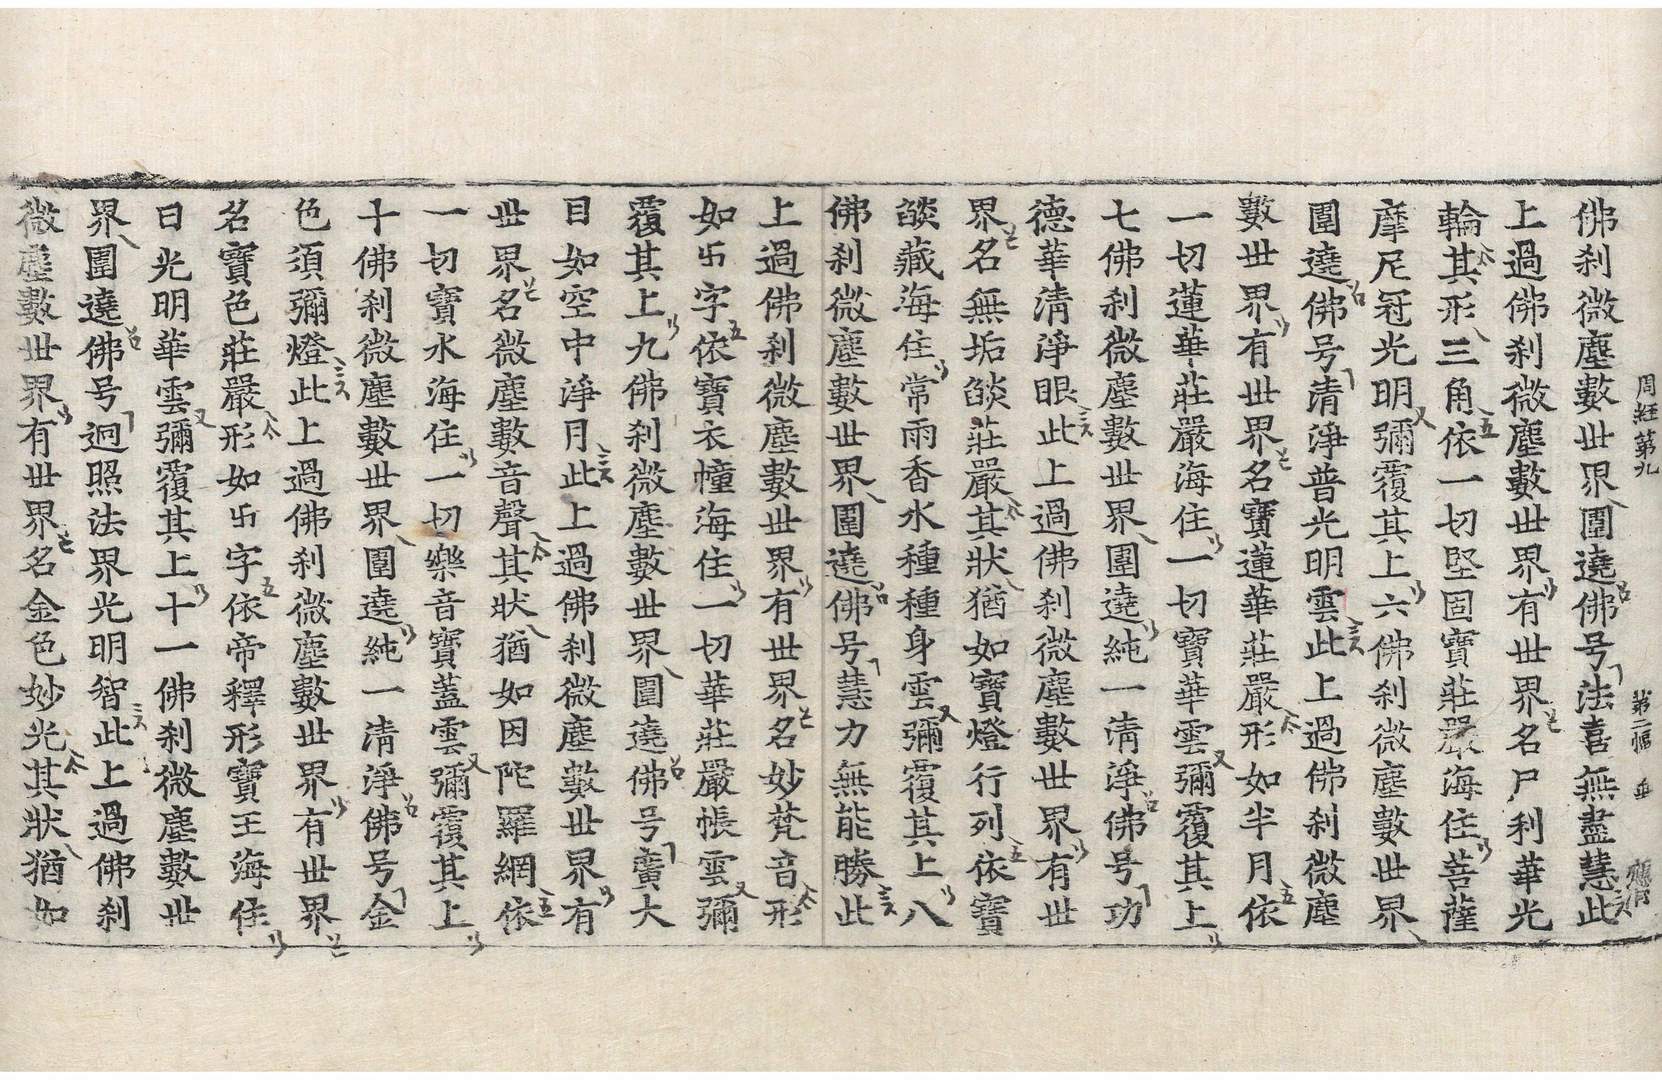 周經第九　第二幅
佛刹微塵數世界圍遶佛号法喜無盡慧此
上過佛刹微塵數世界有世界名尸利華光
輪其形三角依一切堅固寶莊嚴海住菩薩
摩尼冠光明彌覆其上六佛刹微塵數世界
圍遶佛号清淨普光明雲此上過佛刹微塵
數世界有世界名寶蓮華莊嚴形如半月依
一切蓮華莊嚴海住一切寶華雲彌覆其上
七佛刹微塵數世界圍遶純一清淨佛号功
德華清淨眼此上過佛刹微塵數世界有世
界名無垢燄莊嚴其狀猶如寶燈行列依寶
燄藏海住常雨香水種種身雲彌覆其上八
佛刹微塵數世界圍遶佛号慧力無能勝此
上過佛刹微塵數世界有世界名妙梵音形
如卐字依寶衣幢海住一切華莊嚴帳雲彌
覆其上九佛刹微塵數世界圍遶佛号廣大
目如空中淨月此上過佛刹微塵數世界有
世界名微塵數音聲其狀猶如因陀羅網依
一切寶水海住一切樂音寶蓋雲彌覆其上
十佛刹微塵數世界圍遶純一清淨佛号金
色須彌燈此上過佛刹微塵數世界有世界
名寶色莊嚴形如卐字依帝釋形寶王海住
日光明華雲彌覆其上十一佛刹微塵數世
界圍遶佛号迥照法界光明智此上過佛刹
微塵數世界有世界名金色妙光其狀猶如